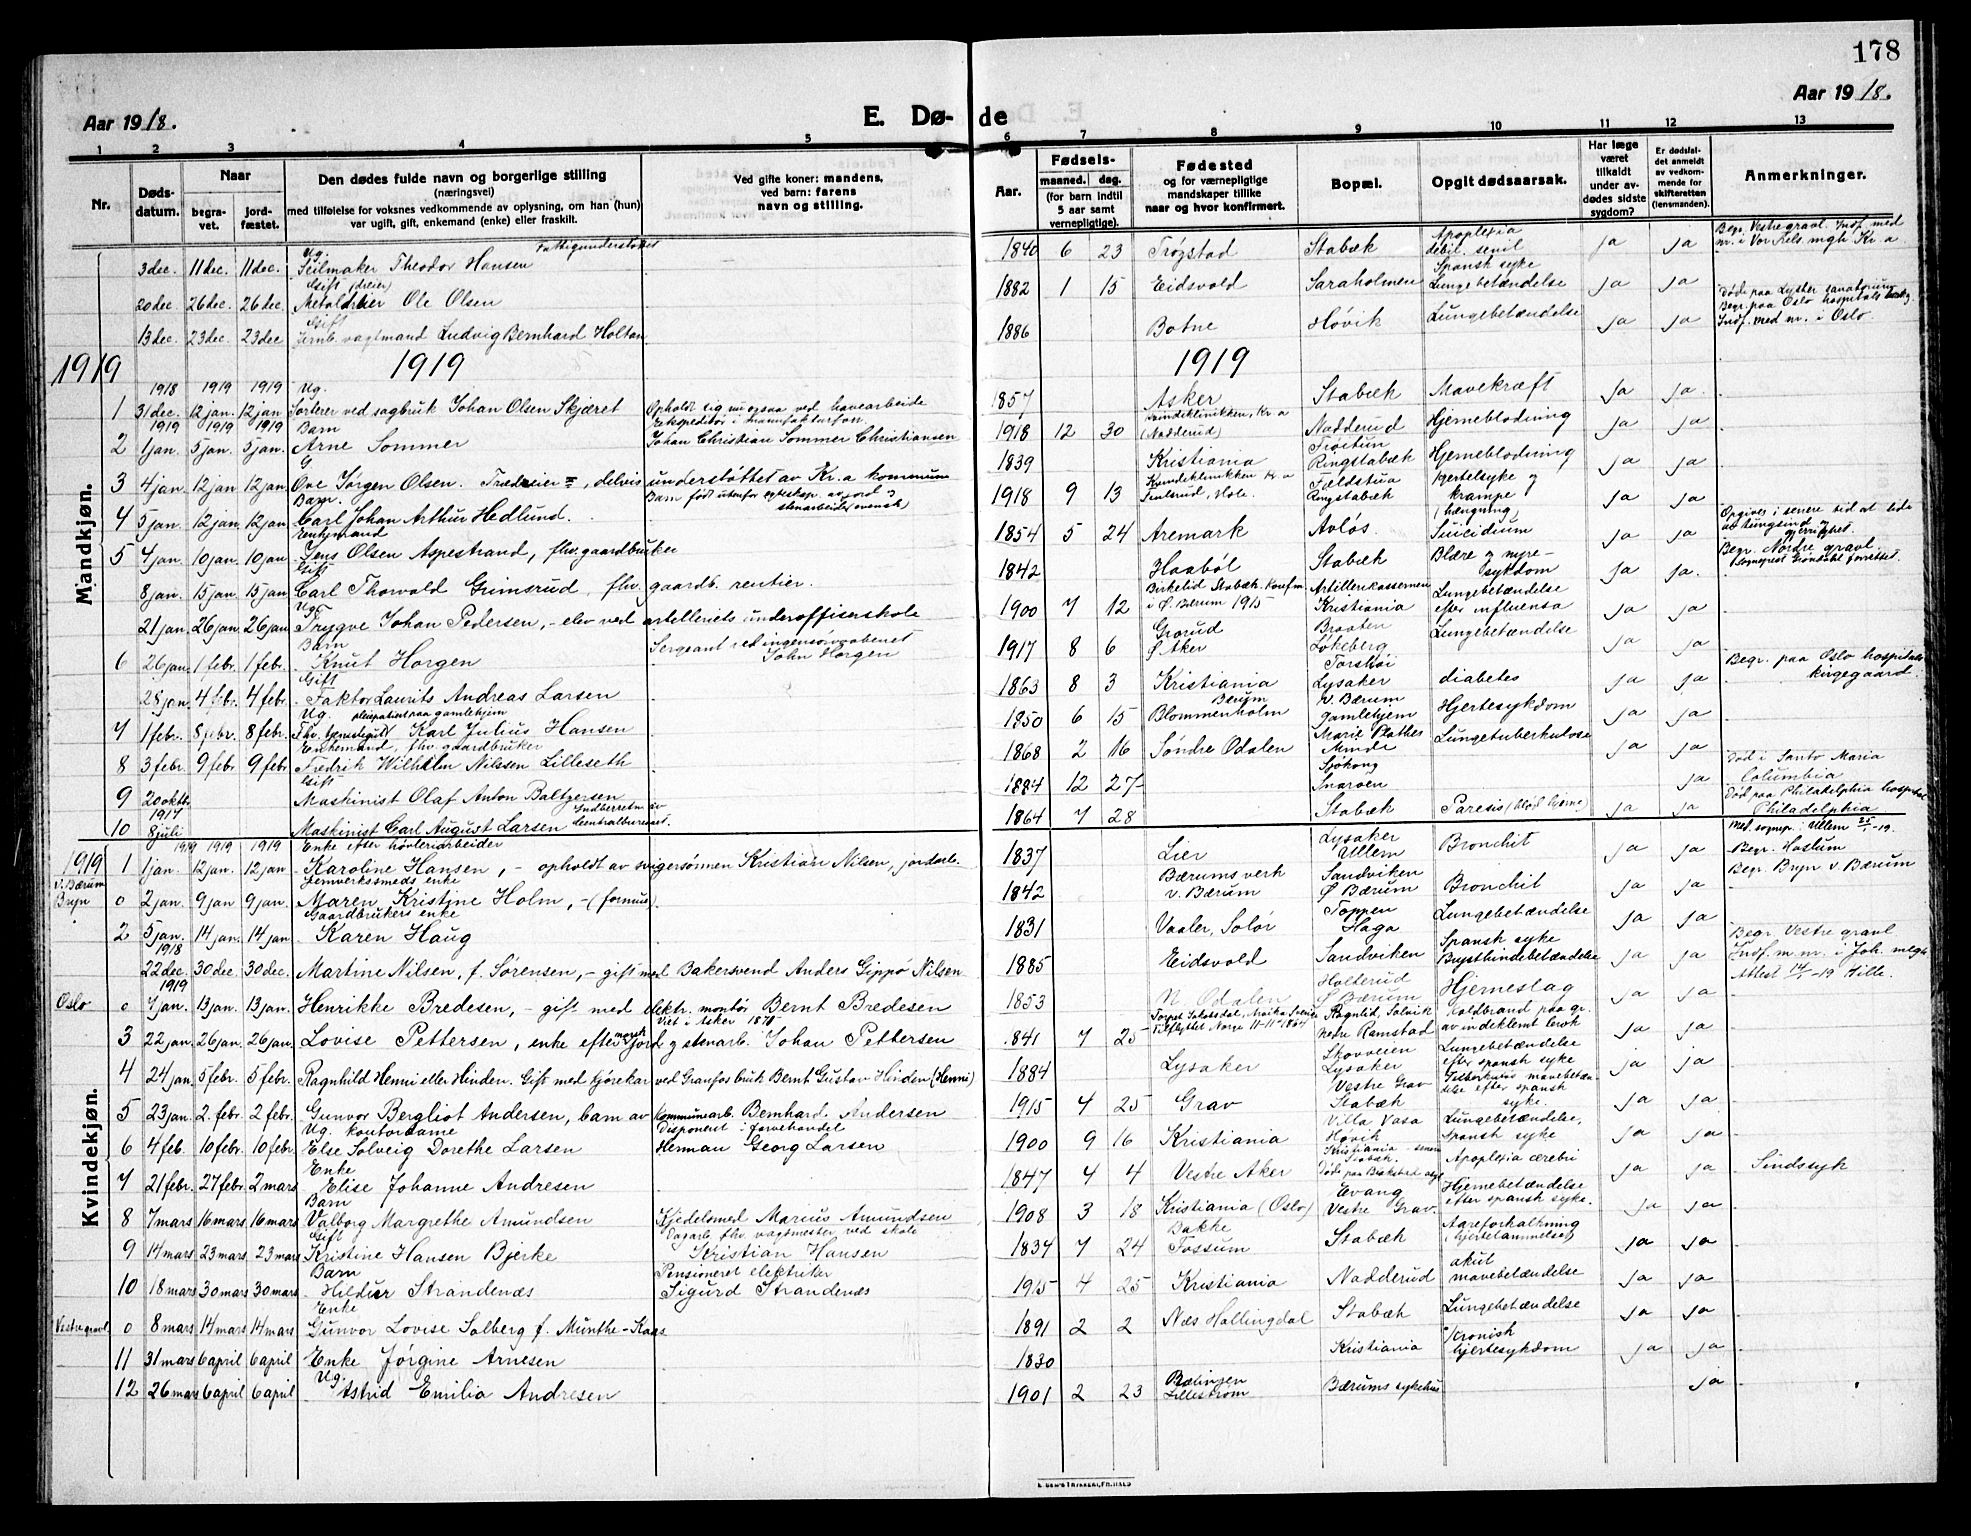 178
Aar 1918.
E. Dø- de
Aar 1918.
1 2 3 4 5 6 7 8 9 10 11 12 13
Nr.
Døds-datum.
Naar
begra-vet.
jord-fæstet.
Den dødes fulde navn og borgerlige stilling
(næringsvei)
med tilføielse for voksnes vedkommende av oplysning, om han (hun)
var ugift, gift, enkemand (enke) eller fraskilt.
Ved gifte koner: mandens,
ved barn: farens
navn og stilling.
Aar.
Fødsels-
maaned. dag.
(for barn indtil
5 aar samt
vernepligtige).
Fødested
og for værnepligtige
mandskaper tillike
naar og hvor konfirmert.
Bopæl.
Opgit dødsaarsak.
Har læge
været
tilkaldt
under av-
dødes sidste
sygdom?
Er dødsfal-
det anmeldt
av vedkom-
mende for
skifteretten
(lensmanden).
Anmerkninger.
Ug. Fattigunderstøttet
3 dec. 11 dec. 11 dec. Seilmaker Theodor Hansen 1840 6 23 Trøgstad Stabæk Apoplexia debil. senil ja ja Begr. Vestre gravl. Indf. med nr. i Vor Frels. mgh. Kr a
Gift (dreier)
20 dec. 26 dec. 26 dec. Metaldreier Ole Olsen 1882 1 15 Eidsvold Saraholmen Spansk syke Lungebetændelse ja ja
Gift
13 dec. 23 dec. 23 dec Jernb. vagtmand Ludvig Bernhard Holtan 1886 Botne Høvik Lungebetændelse ja ja Døde paa Lyster sanatorium Begr. paa Oslo hospitals Indf. med nr. i Oslo
1919 1919 1919
1918 1919 1919 Ug.
1 31 dec. 12 jan. 12 jan Sorterer ved sagbruk Johan Olsen Skjæret Opholdt sig nu ogsaa ved havearbeide 1857 Asker Stabæk Mavekræft ja ja
1919 1919 1919 Barn Ekspeditør i manufakturforr.
2 1 jan. 5 jan. 5 jan. Arne Sommer Johan Christian Sommer Christiansen 1918 12 30 Kvindeklinikken, Kr a (Nadderud) Nadderud Hjerneblødning ja ja
G
3 4 jan. 12 jan. 12 jan. Ove Jørgen Olsen. Trædreier, delvis understøttet av Kr. a kommune 1839 Kristiania Trøctun Ringstabæk Hjerneblødning ja ja
Barn. Barn født utenfor egteskap av jord og stenarbeider (svensk)
4 5 jan. 12 jan. 12 jan. Carl Johan Arthur Hedlund. 1918 9 13 Kvindeklinikken Kr a Hole. Fældstua Ringstabæk hjertelsyke og krampe ja ja
Enkemand
5 4 jan. 10 jan. 10 jan. Jens Olsen Aspestrand, fhv. gaardbruker 1854 5 24 Aremark Avløs (hængning) Suicidium ja ja Opgives i senere tid at lide av tungsind og gjerrighet.
Gift
8 jan. 15 jan. 15 jan Carl Thorvald Grimsrud, fhv. gaardb. rentier. 1842 Haabøl Stabæk Blære og nyre-sykdom ja ja. Begr. Nordre gravl.
Ug.
21 jan. 26 jan. 26 jan. Trygve Johan Pedersen, - elev ved artelleriets underoffiserskole 1900 7 12 Birkelid Stabæk. konfirm. i Ø. Bærum 1915 Artillerikassernen Kristiania Lungebetændelse efter influensa ja ja
Barn
6 26 jan. 1 febr. 1 febr. Knut Horgen Sergeant ved ingeniørvaabenet John Horgen 1917 8 6 Grorud Ø. Aker Braaten Løkeberg Lungebetændelse ja ja
Gift
28 jan. 4 febr. 4 febr. Faktor Laurits Andreas Larsen 1863 8 3 Kristiania Torshøi Lysaker diabetes ja ja Begr. paa Oslo hospitals kirgegaard.
Ug. pleiepatient paa gamlehjem
7 1 febr. 8 febr. 8 febr. Karl Julius Hansen 1850 6 15 Bærum Blommenholm V. Bærum gamlehjem Hjertesykdom ja ja
Enkemand, fhv. gaardbruker
8 3 febr. 9 febr. 9 febr Fredrik Wilhelm Nilssen Lilleseth 1868 2 16 Søndre Odalen Marie Plathes Minde Lungetuberkulose ja ja
Gift
9 20 oktbr. Maskinist Olaf Anton Baltzersen 1884 12 27 Sjøkong Snarøen ja Død i Santo Maria Columbia
1917 Indberetn. av Centralbureauet.
10 8 juli Maskinist Carl August Larsen 1864 7 28 Stabæk Paresis (blød hjerne) ja ja Død paa Philadelphia hospital Philadelphia
Mandkjøn.
1919 1919 1919 1919 Enke efter høvleriarbeider
1 1 jan. 12 jan. 12 jan. Karoline Hansen, - opholdt av svigersønnen Kristian Nilsen, jordarb. 1837 Lier Lysaker Ullern Bronchit ja ja Med. sognepr. i Ullern 25/1-19. Begr. Haslum
V. Bærum Bryn Jernverkssmeds enke
0 2 jan. 9 jan 9 jan. Maren Kristine Holm, - (formue) 1842 Bærums verk V. Bærum Sandviken Ø Bærum Bronchit ja ja Begr. Bryn V Bærum
Gaardbrukers enke
2 5 jan. 14 jan. 14 jan. Karen Haug 1831 Vaaler, Solør Toppen Haga Lungebetændelse ja ja
1918
22 dec. 30 dec. 30 dec. Martine Nilsen, f. Sørensen, - gift med Bakersvend Anders Gippø Nilsen 1885 Eidsvold Sandviken Spansk syke Brysthindebetændelse ja ja Begr. Vestre gravl. Indf. m. nr. i Joh. mgh Attest -19 Hille.
1919
Oslo 0 7 jan. 13 jan. 13 jan. Henrikke Bredesen, - gift med elektr. montør Bernt Bredesen 1853 N. Odalen Holterud Ø Bærum Hjerneslag ja ja
Viet i Asker 1870
3 22 jan. 26 jan. 26 jan. Lovise Pettersen, enke efter norsk jord og stenarb. Johan Pettersen 1841 7 25 Tilflyttet Norge 11-11-1864 Ragnlid, Solvik nedre Ramstad Koldbrand paa gr. av indeklemt brok ja ja
4 24 jan. 5 febr. 5 febr. Ragnhild Henni eller Hinden. Gift med kjørekar ved Granfos bruk Bernt Gustav Hinden (Henni) 1884 Lysaker Skovveien Lysaker Lungebetændelse efter spansk syke ja ja
5 23 jan. 2. febr. 2 febr. Gunvor Bergliot Andersen, barn av Kommunearb. Bernhard Andersen 1915 4 25 Grav Vestre Grav Stabæk efter spansk syke. ja ja
Ug. kontordame Disponent i farvehandel
6 4 feb. 10 febr. 10 febr. Else Solveig Dorethe Larsen Herman Georg Larsen 1900 9 16 Kristiania Villa Vasa Høvik Lungebetændelse, spansk syke ja ja
Enke
7 21 febr. 27 febr. 2 mars Elise Johanne Andresen 1847 4 4 Vestre Aker Kristiania - senere Stabæk. Apoplexia cerebri ja ja Sindssyk
Barn
8 7 mars 16 mars 16 mars Valborg Margrethe Amundsen Kjedelsmed Marius Amundsen 1908 3 18 Kristiania (Oslo) Evang Vestre Grav. Hjernebetændelse efter spansk syke. ja ja
Gift Dagarb. fhv. vagtmester ved skole
9 14 mars 23 mars 23 mars Kristine Hansen Bjerke Kristian Hansen 1834 7 24 Bakke Tossum Stabæk Aareforkalkning (hjertelammelse) ja ja
Barn Pensioneret elektriker
10 18 mars 30 mars 30 mars Hildur Strandenæs Sigurd Strandenæs 1915 4 25 Kristiania Nadderud akut mavebetændelse ja ja
Enke
Vestre gravl 0 8 mars 14 mars 14 mars Gunvor Lovise Solberg f. Munthe-Kaas 1891 2 2 Næs Hallingdal Stabæk Lungebetændelse ja ja
11 31 mars 6 april 6 april Enke Jørgine Arnesen 1830 Kristiania kronisk hjertesykdom ja ja
Ug.
12 26 mars 6 april 6 april Astrid Emilia Andresen 1901 2 23 Lillestrøm Bærums sykehus ja
Kvindekjøn.